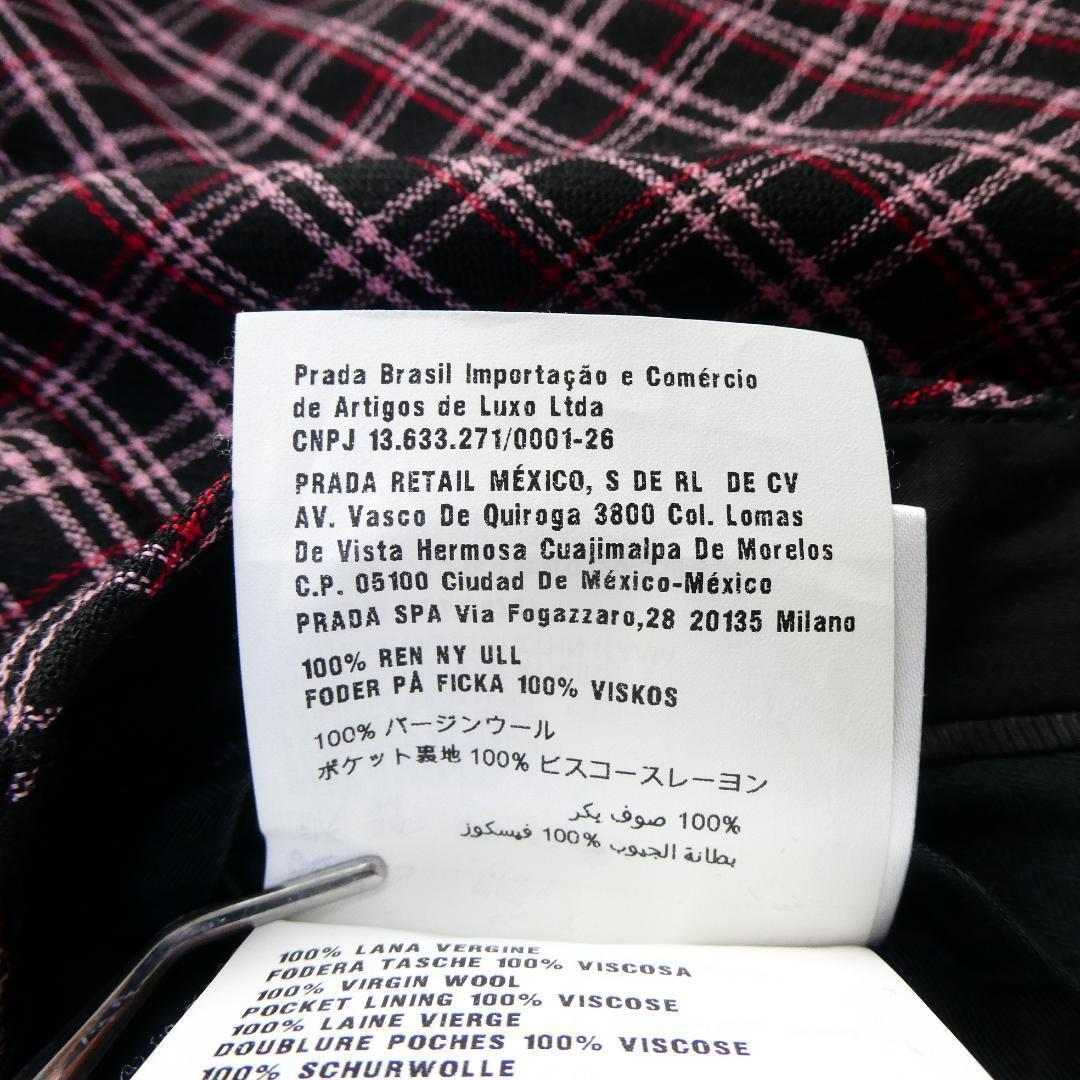 Prada Brasil Importação e Comércio
de Artigos de Luxo Ltda
CNPJ 13.633.271/0001-26
PRADA RETAIL MÉXICO, S DE RL DE CV
AV. Vasco De Quiroga 3800 Col. Lomas
De Vista Hermosa Cuajimalpa De Morelos
C.P. 05100 Ciudad De México-México
PRADA SPA Via Fogazzaro,28 20135 Milano
100% REN NY ULL
FODER PÅ FICKA 100% VISKOS
100% バージンウール
ポケット裏地 100% ビスコースレーヨン
100% صوف بكر
بطانة الجيوب 100% فيسكوز
100% LANA VERGINE
FODERA TASCHE 100% VISCOSA
100% VIRGIN WOOL
POCKET LINING 100% VISCOSE
100% LAINE VIERGE
DOUBLURE POCHES 100% VISCOSE
100% SCHURWOLLE